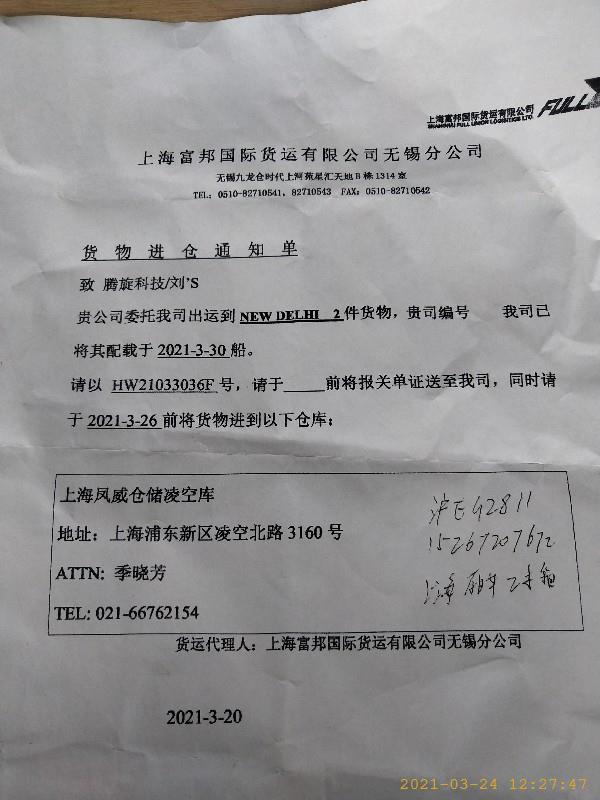 上海富邦国际货运有限公司 FULL
SHANGHAI FULL UNION LOGISTICS LTD.
上海富邦国际货运有限公司无锡分公司
无锡九龙仓时代上河苑星汇天地B栋1314室
TEL: 0510-82710541, 82710543 FAX: 0510-82710542
货物进仓通知单
致 腾旋科技/刘'S
贵公司委托我司出运到 NEW DELHI 2件货物，贵司编号 我司已
将其配载于 2021-3-30 船。
请以 HW21033036F 号，请于 前将报关单证送至我司，同时请
于 2021-3-26 前将货物进到以下仓库：
上海凤威仓储凌空库
地址：上海浦东新区凌空北路3160号
ATTN: 季晓芳
TEL: 021-66762154
沪EG2811
15267207672
上海
货运代理人：上海富邦国际货运有限公司无锡分公司
2021-3-20
2021-03-24 12:27:47